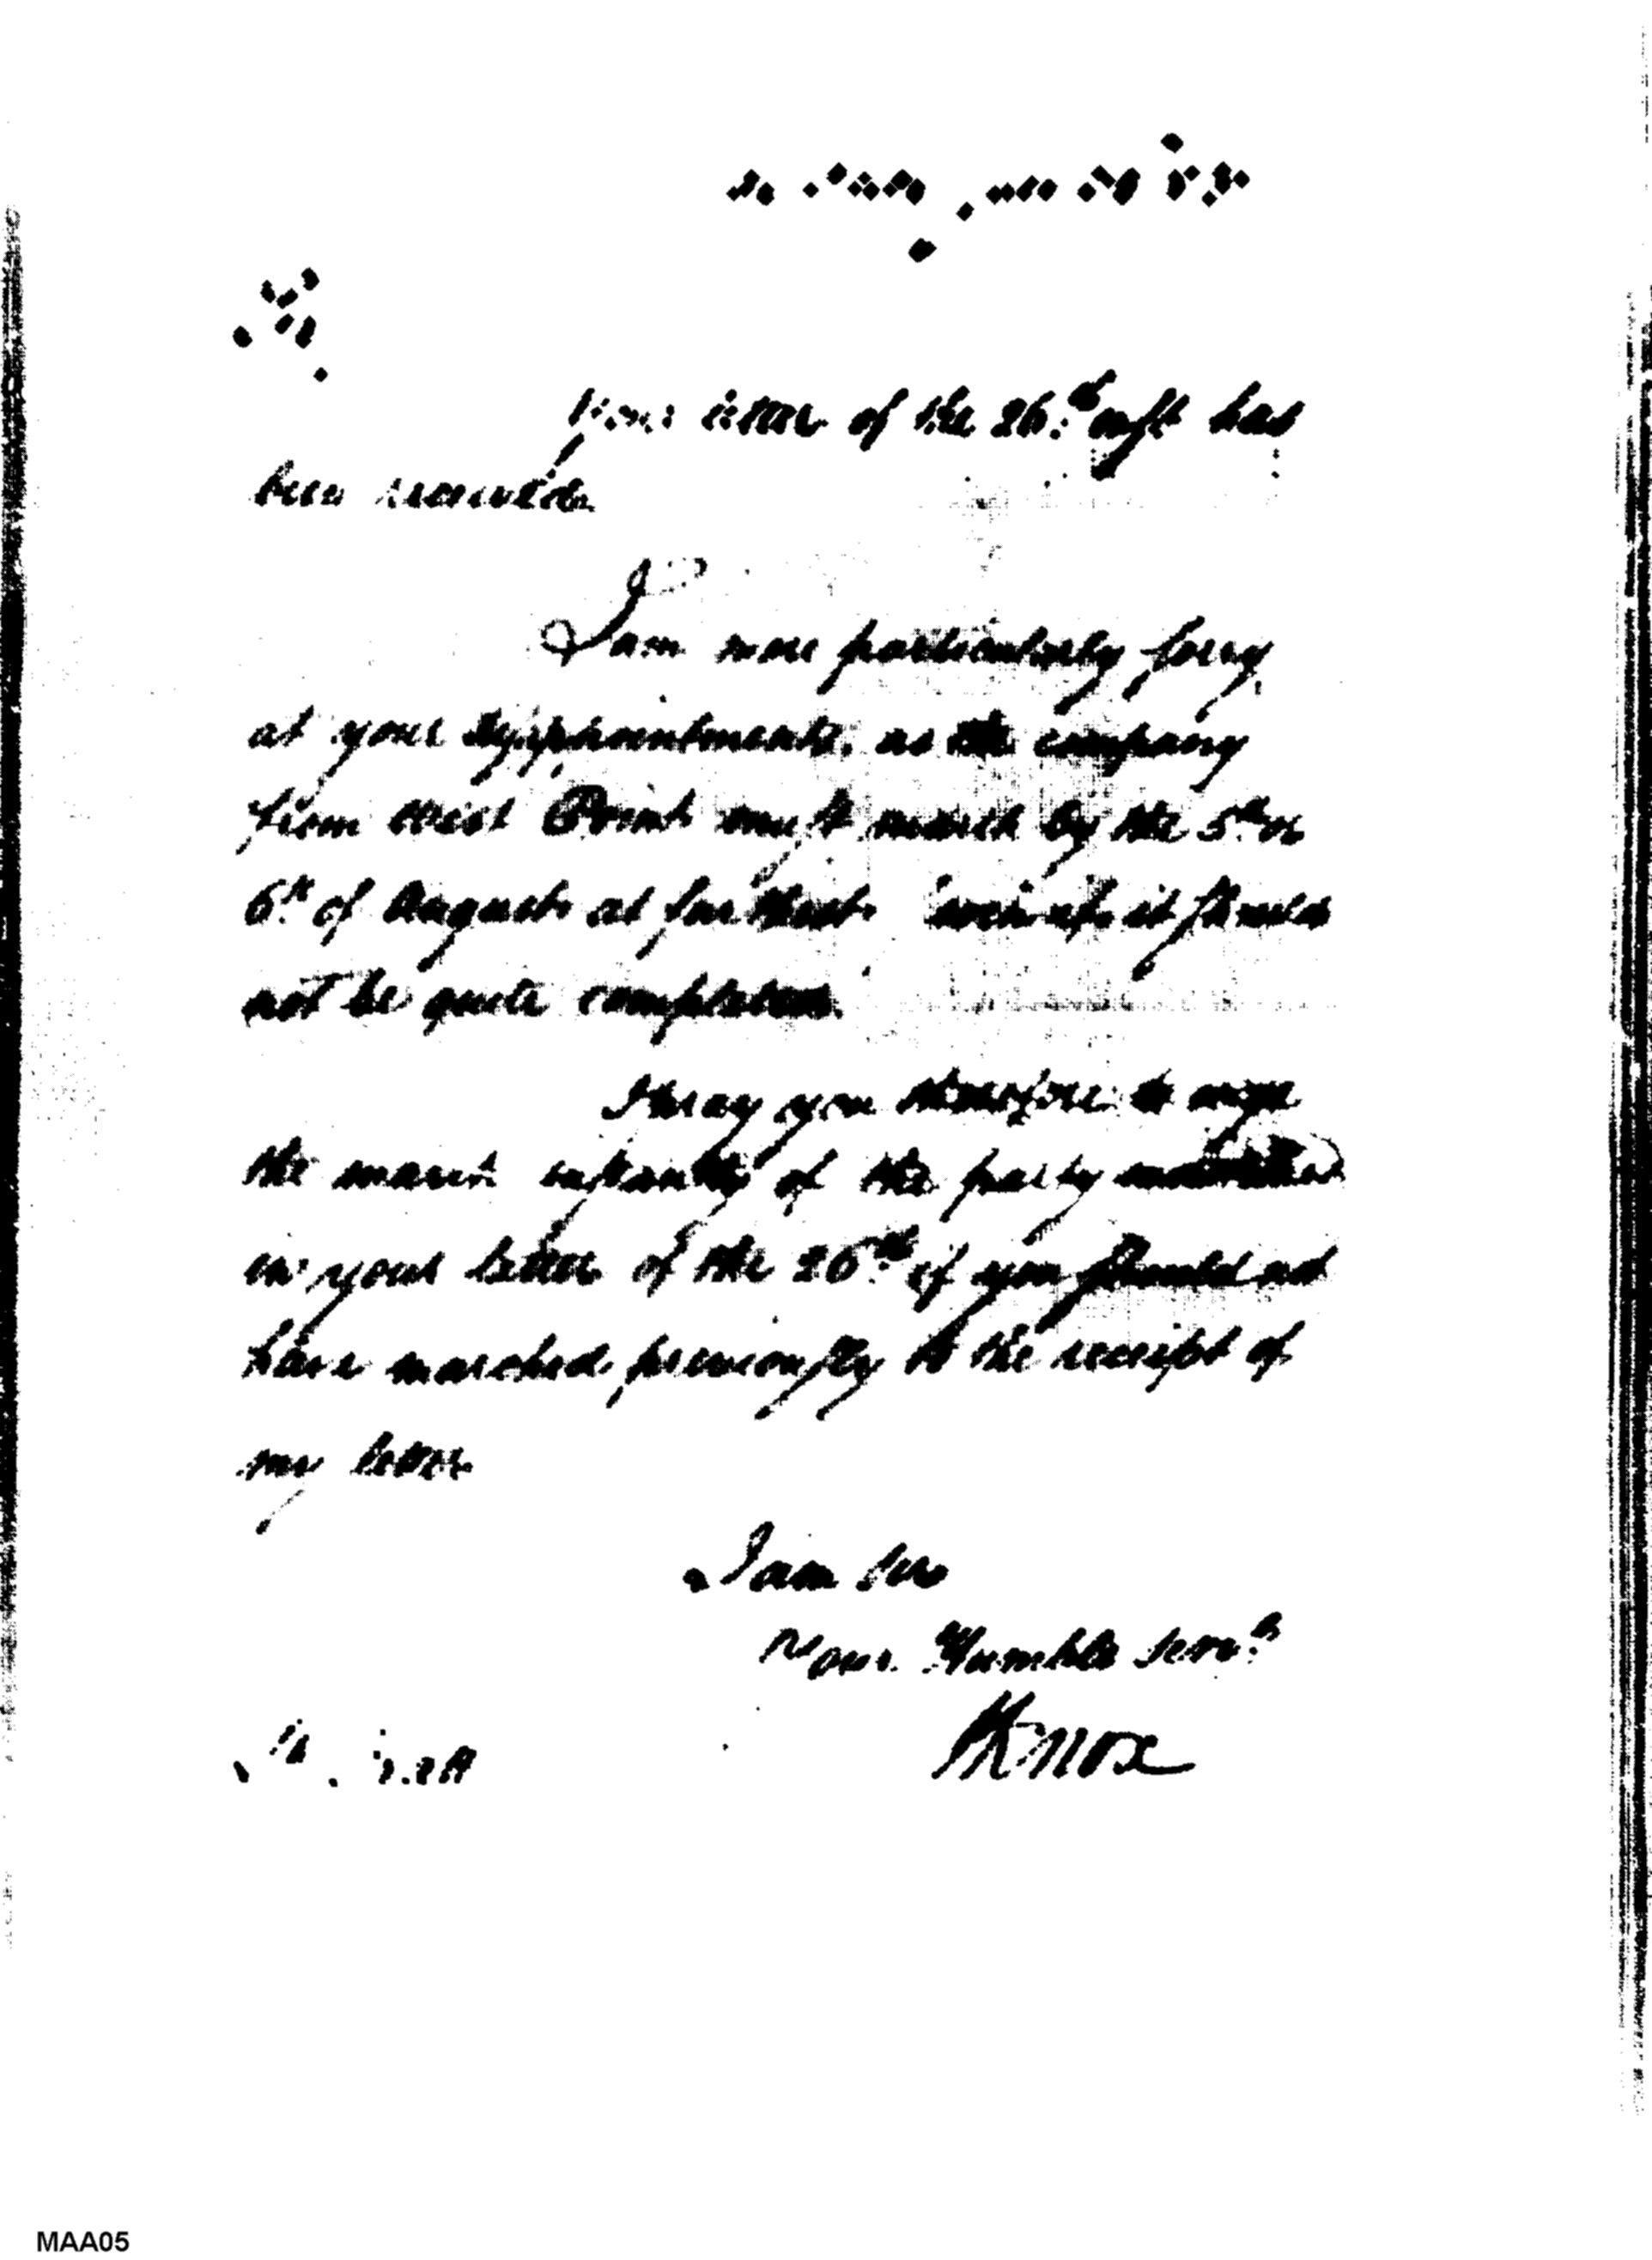 Your letter of the 26th inst has
been received
I am more particularly sorry
at your disappointments, as the company
from West Point must march by the 5th or
6th of August at furthest it should
not be quite completed.
I pray you therefore to urge
the march instantly of the party mentioned
in your letter of the 26th if you should not
have marched previously to the receipt of
my letter
I am Sir
Your Humble Servt
HKnox
MAA05